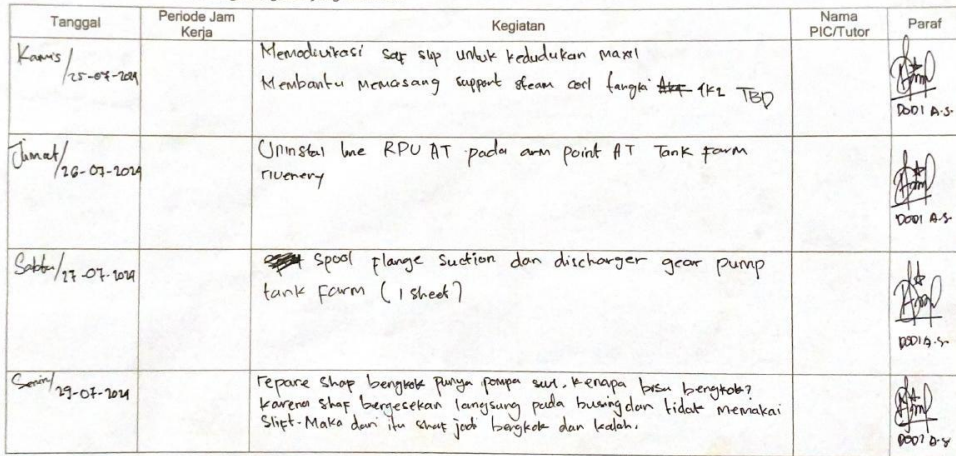 Tanggal
Periode Jam
Kerja
Kegiatan
Nama
PIC/Tutor
Paraf
Kamis/25-07-2024
Memodivikasi saf slip untuk kedudukan maxal
Membantu Memasang support steam coil tangki 1K2 TBD
DODI A.S.
Jumat/26-07-2024
Uninstal line RPU AT pada arm point AT Tank Farm
rivenery
DODI A.S.
Sabtu/27-07-2024
Spool flange suction dan discharger gear pump
tank Farm (1 sheet)
DODI A.S.
Senin/29-07-2024
repare shap bengkok punya pompa sul. kenapa bisa bengkok?
karena shaf bergesekan langsung pada busing dan tidak memakai
slift. Maka dari itu shaf jadi bengkok dan kalah.
DODI A.S